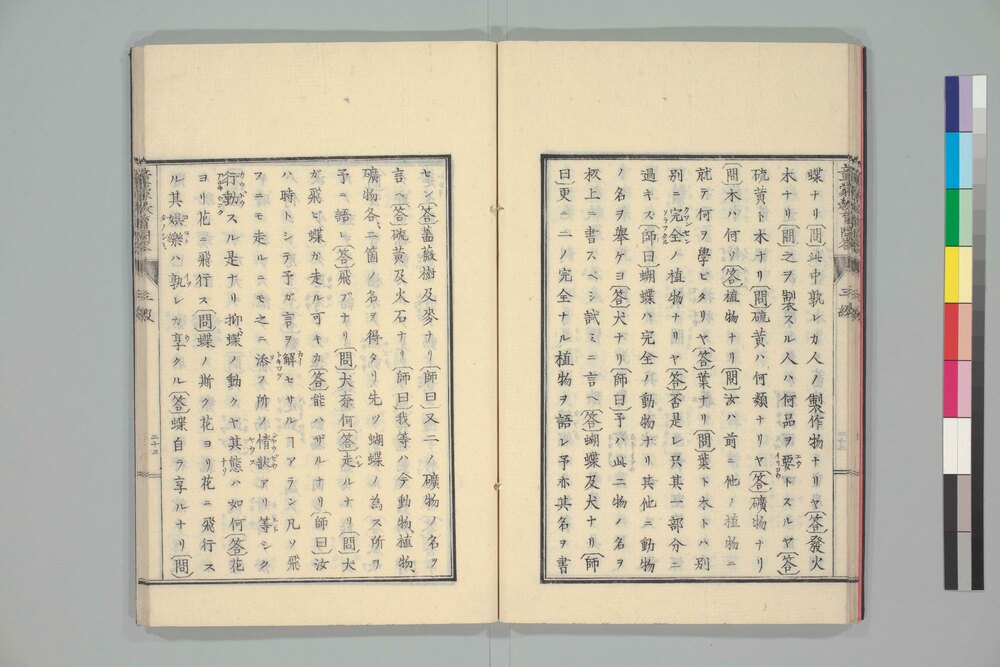 蝶ナリ問此中孰レカ人ノ製作物ナリヤ答發火
木ナリ問之ヲ製スル人ハ何品ヲ要トスルヤ答
硫黄ト木ナリ問硫黄ハ何類ナリヤ答礦物ナリ
問木ハ何ソ答植物ナリ問汝ハ前ニ他ノ植物ニ
就テ何ヲ學ビタリヤ答葉ナリ問葉ト木トハ別
別ニ完全ノ植物ナリヤ答否是レ只其一部分ニ
過キス師曰蝴蝶ハ完全ノ動物ナリ其他ニ動物
ノ名ヲ擧ケヨ答犬ナリ師曰予ハ此二物ノ名ヲ
板上ニ書スベシ試ミニ言ヘ答蝴蝶及犬ナリ師
曰更ニ二ノ完全ナル植物ヲ語レ予亦其名ヲ書
セン答薔薇樹及麥ナリ師曰又二ノ礦物ノ名ヲ
言ヘ答硫黄及火石ナリ師曰我等ハ今動物、植物、
礦物各二箇ノ名ヲ得タリ先ツ蝴蝶ノ為ス所ヲ
予ニ語レ答飛ブナリ問犬奈何答走ルナリ問犬
ガ飛ビ蝶ガ走ル可キカ答能ハザルナリ師曰汝
ハ時トシテ予ガ言ヲ解セサルヿアラン凡ソ飛
フニモ走ルニモ之ニ添フ所ノ情狀アリ等シク
行動スル是ナリ抑蝶ノ動クヤ其態ハ如何答花
ヨリ花ニ飛行ス問蝶ノ斯ク花ヨリ花ニ飛行ス
ル其娯樂ハ孰レカ享クル答蝶自ラ享ルナリ問